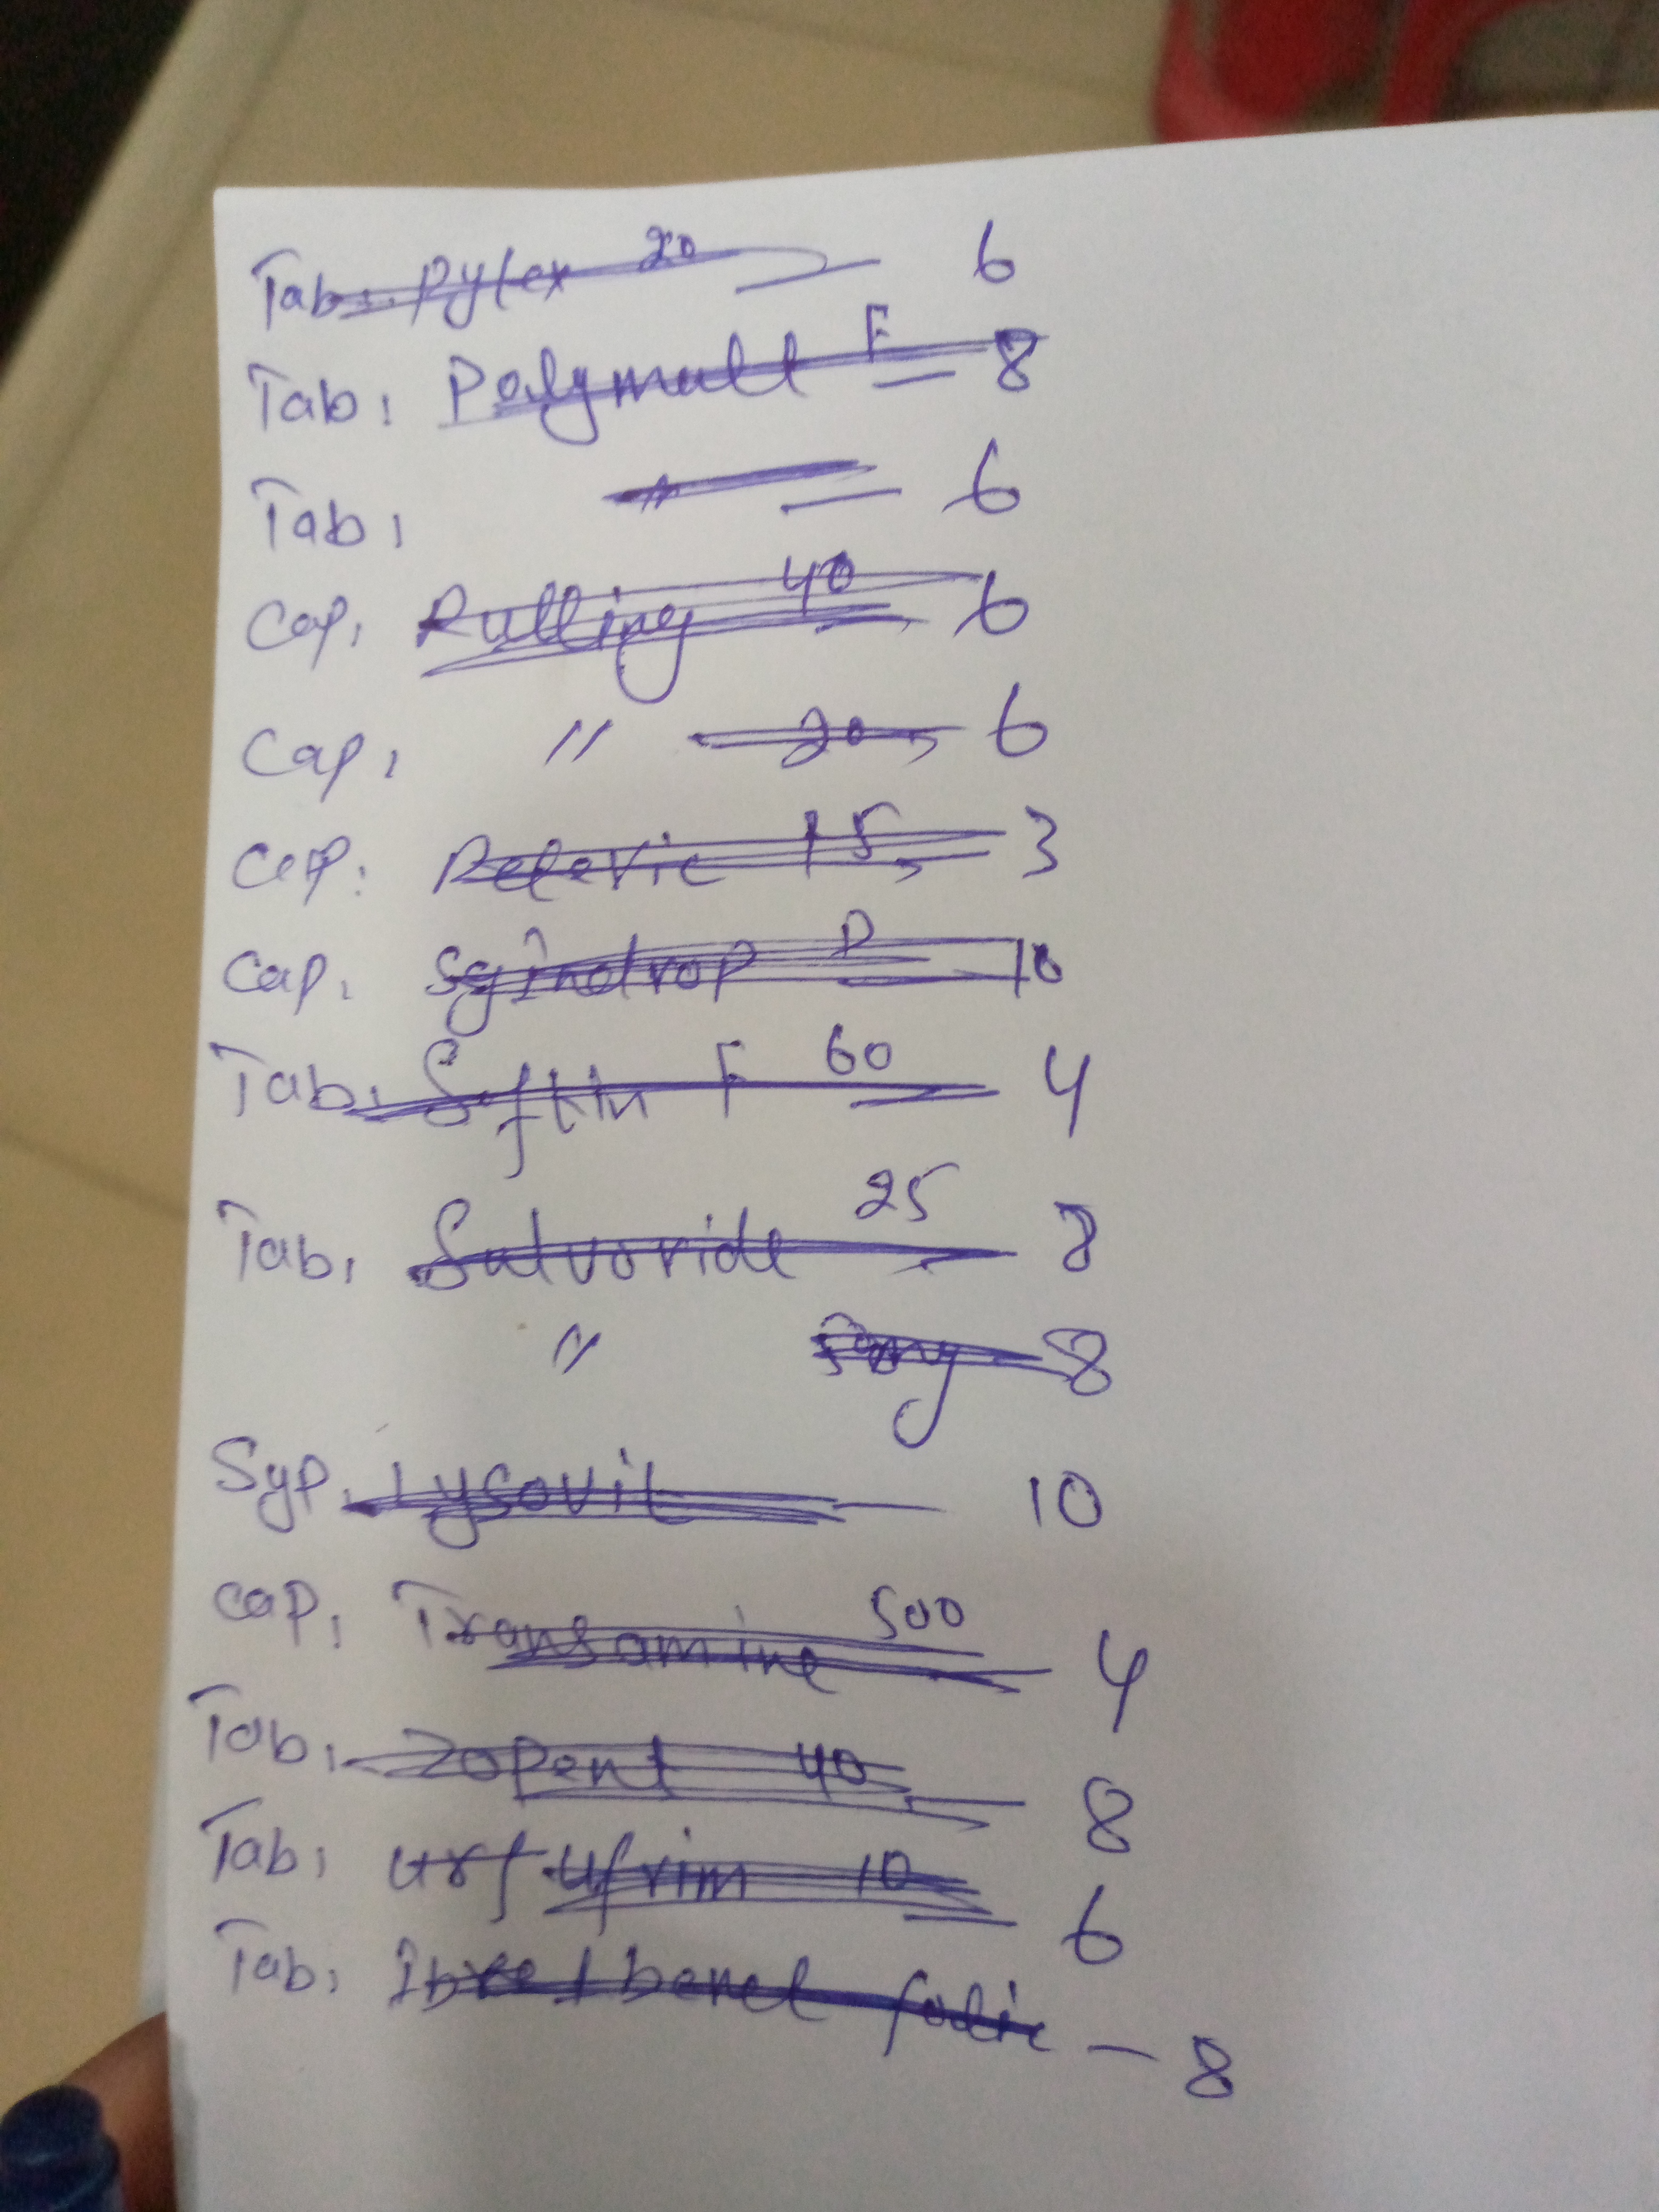 Tab. Pylex 20 — 6
Tab. Polymalt F — 8
Tab. " — 6
Cap. Rulling 40 — 6
Cap. " 20 — 6
Cap. Relevic 15 — 3
Cap. 10
Tab. F 60 — 4
Tab. 25 8
" 8
Syp. Lysovit — 10
Cap. Transamine 500 — 4
Tab. Zopent 40 — 8
Tab. urf ufrim 10 — 6
Tab. folic — 8